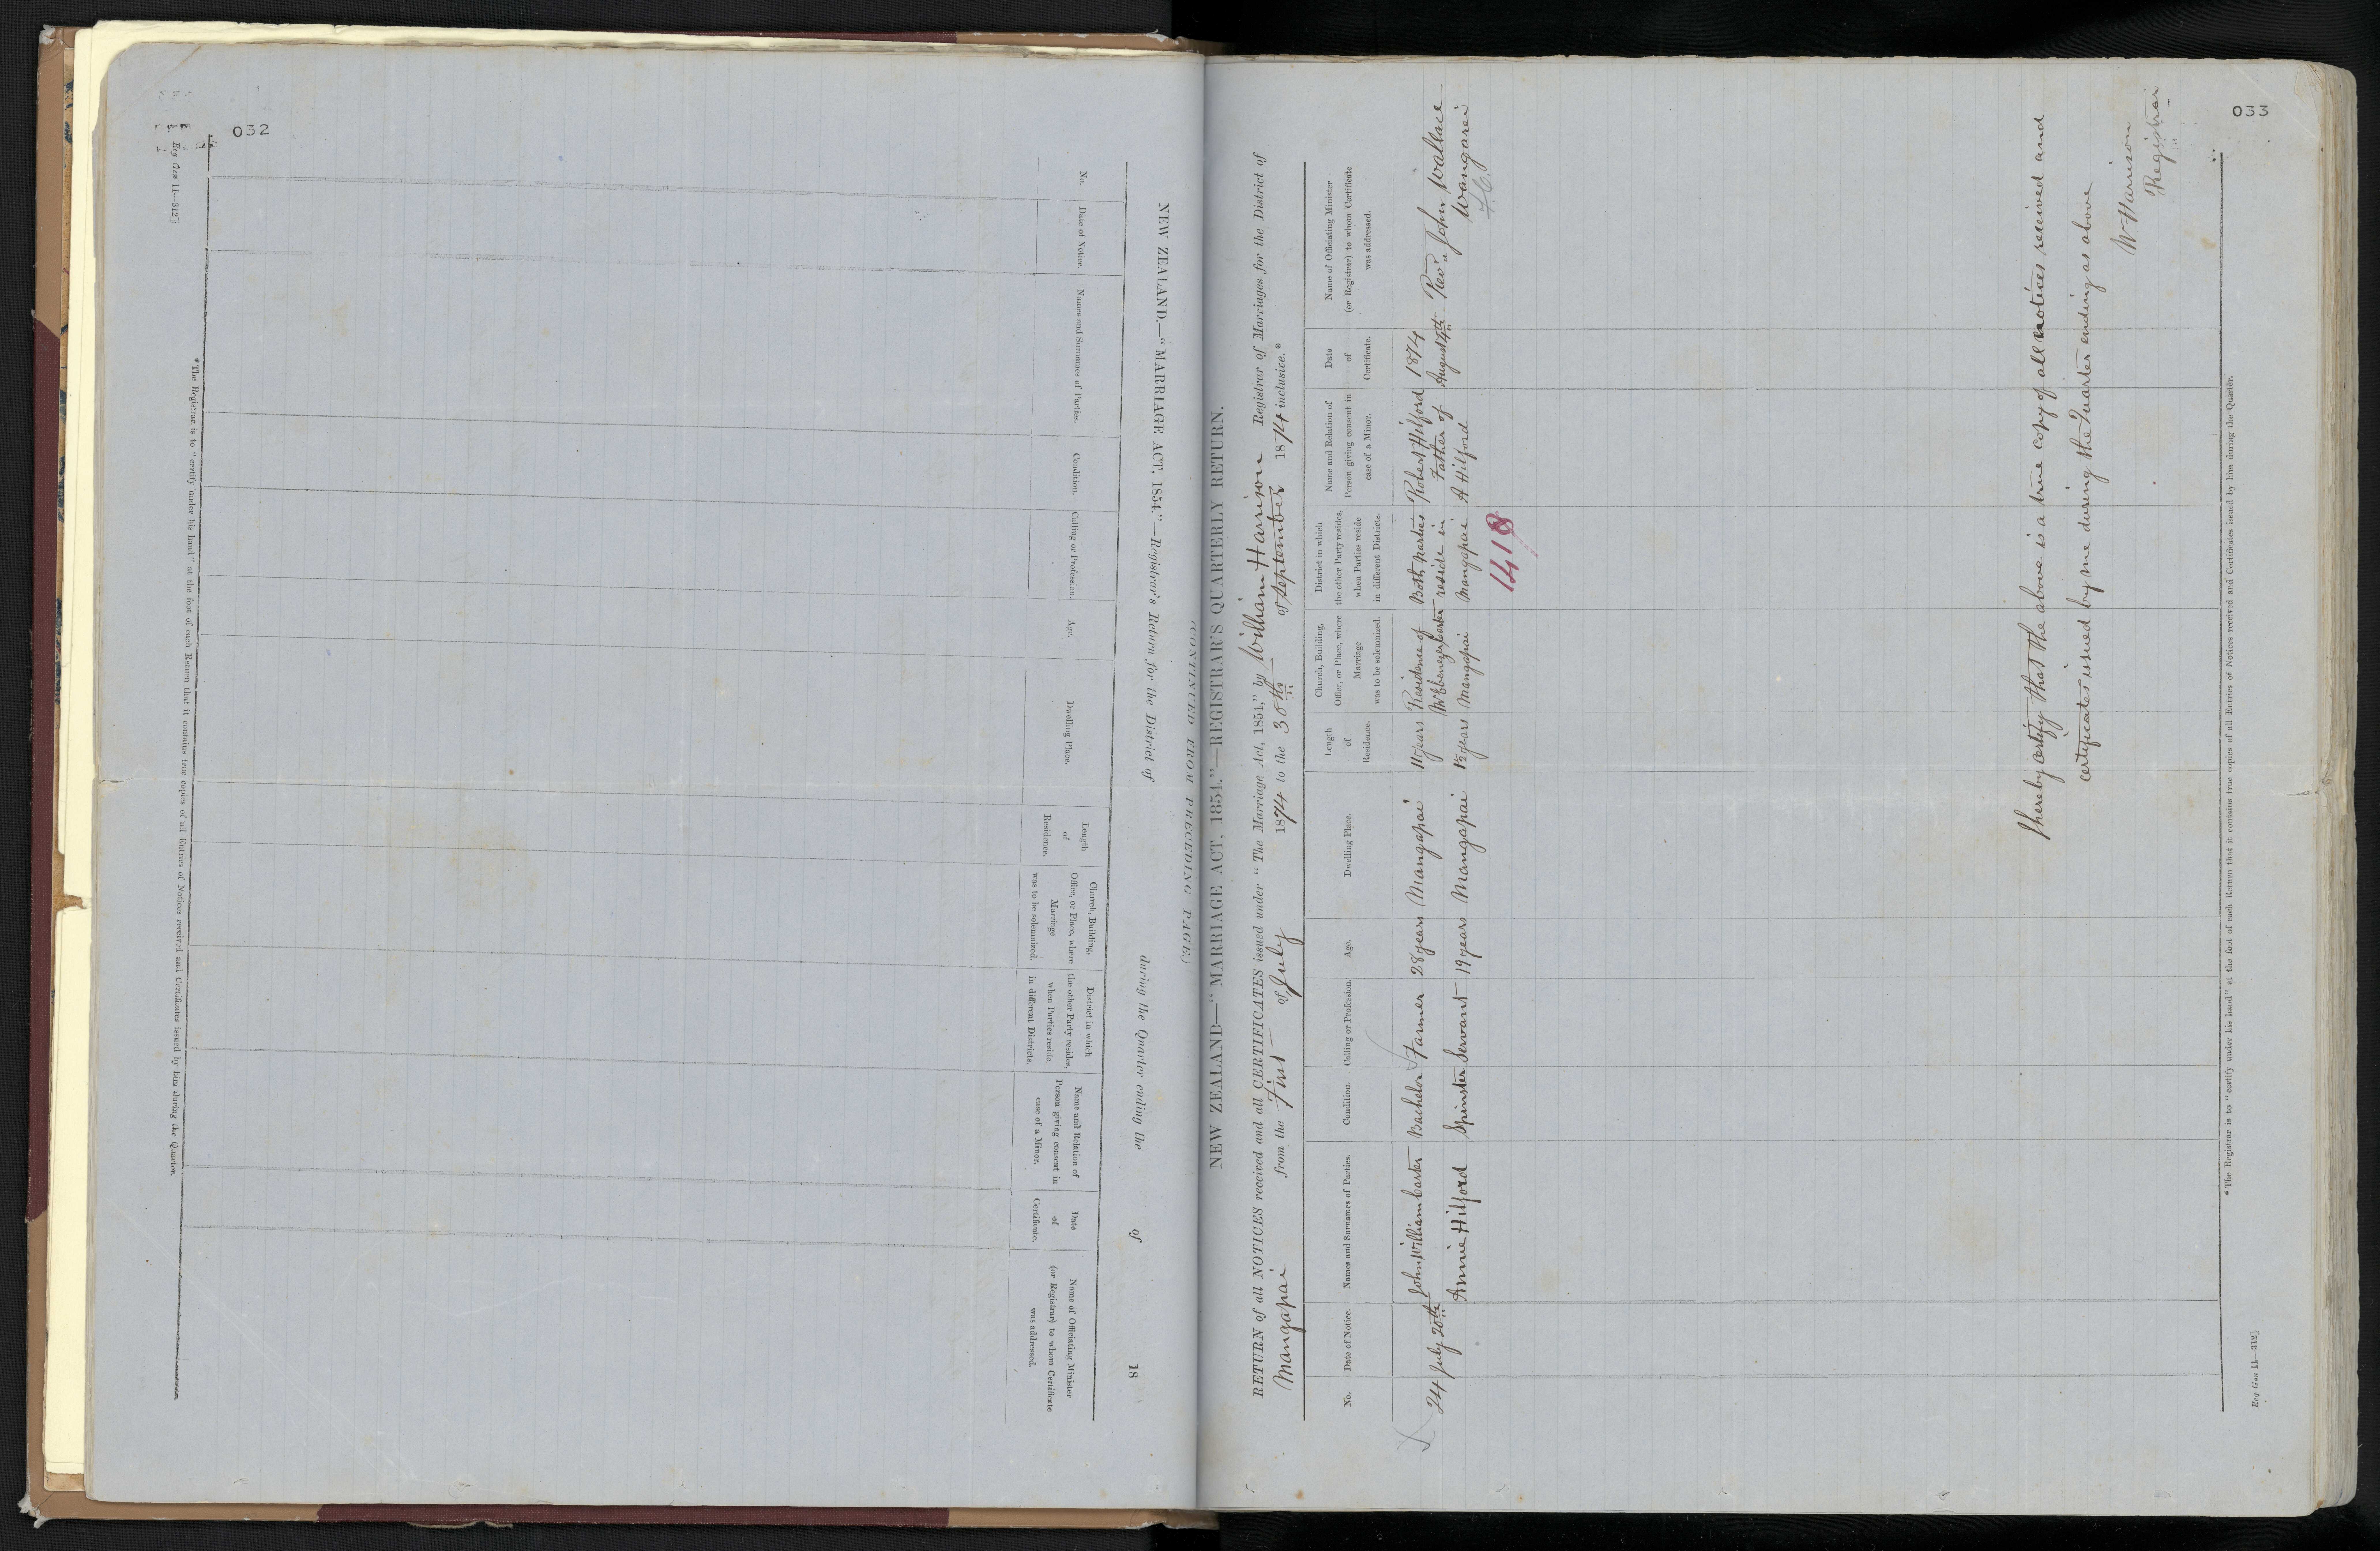 032
Reg Gen 11—312]
(CONTINUED FROM PRECEDING PAGE.)
NEW ZEALAND.—"MARRIAGE ACT, 1854."—Registrar's Return for the District of during the Quarter ending the of 18
No.
Date of Notice.
Names and Surnames of Parties.
Condition.
Calling or Profession.
Age.
Dwelling Place.
Length
of
Residence.
Church, Building,
Office, or Place, where
Marriage
was to be solemnized.
District in which
the other Party resides,
when Parties reside
in different Districts.
Name and Relation of
Person giving consent in
case of a Minor.
Date
of
Certificate.
Name of Officiating Minister
(or Registrar) to whom Certificate
was addressed.
*The Registrar is to "certify under his hand" at the foot of each Return that it contains true copies of all Entries of Notices received and Certificates issued by him during the Quarter.
033
NEW ZEALAND—"MARRIAGE ACT, 1854."—REGISTRAR'S QUARTERLY RETURN.
RETURN of all NOTICES received and all CERTIFICATES issued under "The Marriage Act, 1854," by William Harrison Registrar of Marriages for the District of
Mangapai from the First of July 1874 to the 30th of September 1874 inclusive.*
No.
Date of Notice.
Names and Surnames of Parties.
Condition.
Calling or Profession.
Age.
Dwelling Place.
Length
of
Residence.
Church, Building,
Office, or Place, where
Marriage
was to be solemnized.
District in which
the other Party resides,
when Parties reside
in different Districts.
Name and Relation of
Person giving consent in
case of a Minor.
Date
of
Certificate.
Name of Officiating Minister
(or Registrar) to whom Certificate
was addressed.
24 July 20th
John William Carter
Annie Hilford
Bachelor
Spinster
Farmer
Servant
28 years
19 years
Mangapai
Mangapai
11 years
years
Residence of
Mr Ebenezer Carter
Mangapai
Both parties
reside in
Mangapai
Robert Hilford
Father of
A Hilford
1874
August 4th
Revd John Wallace
Wangarei
1418
I hereby certify that the above is a true copy of all notices received and
certificates issued by me during the Quarter ending as above
W Harrison
Registrar
*The Registrar is to "certify under his hand" at the foot of each Return that it contains true copies of all Entries of Notices received and Certificates issued by him during the Quarter.
Reg Gen 11—312]